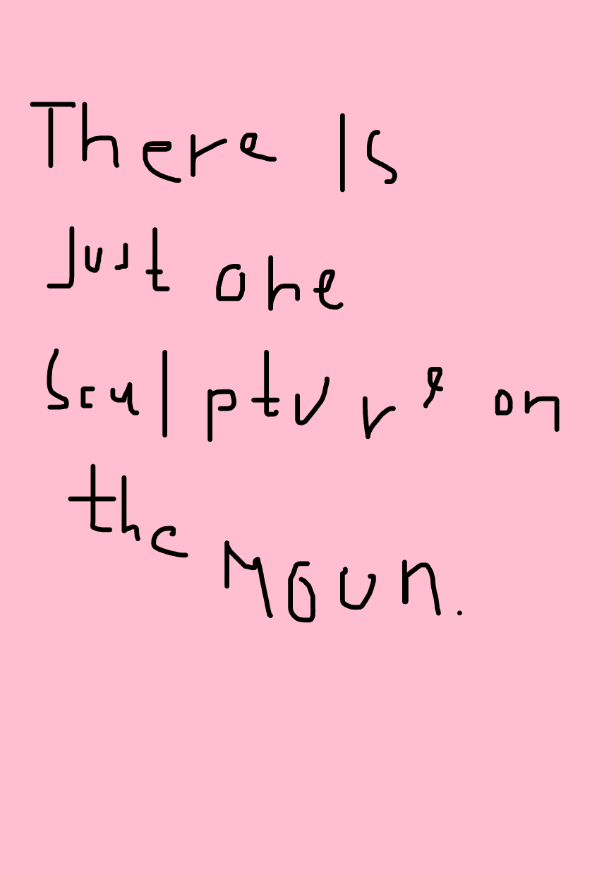 There Is
Just one
Sculpture on
the Moun.